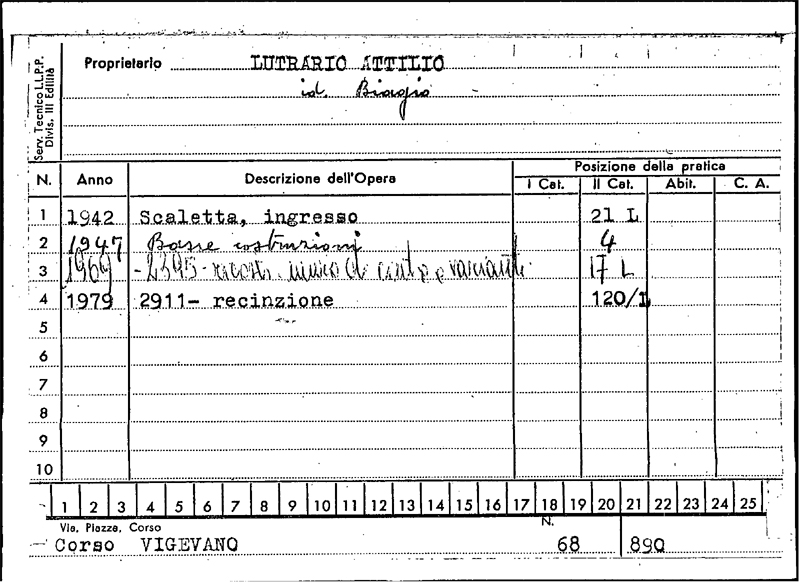 Serv. Tecnico L.L.P.P.
Divis. III Edilità
Proprietario LUTRARIO ATTILIO
id. Biagio
N. Anno Descrizione dell'Opera Posizione della pratica
I Cat. II Cat. Abit. C. A.
1 1942 Scaletta, ingresso 21 L
2 1947 Basse costruzioni 4
3 1969 - 2395 - muro di variante 17 L
4 1979 2911- recinzione 120/L
5
6
7
8
9
10
1 2 3 4 5 6 7 8 9 10 11 12 13 14 15 16 17 18 19 20 21 22 23 24 25
Via, Piazza, Corso N.
Corso VIGEVANO 68 890